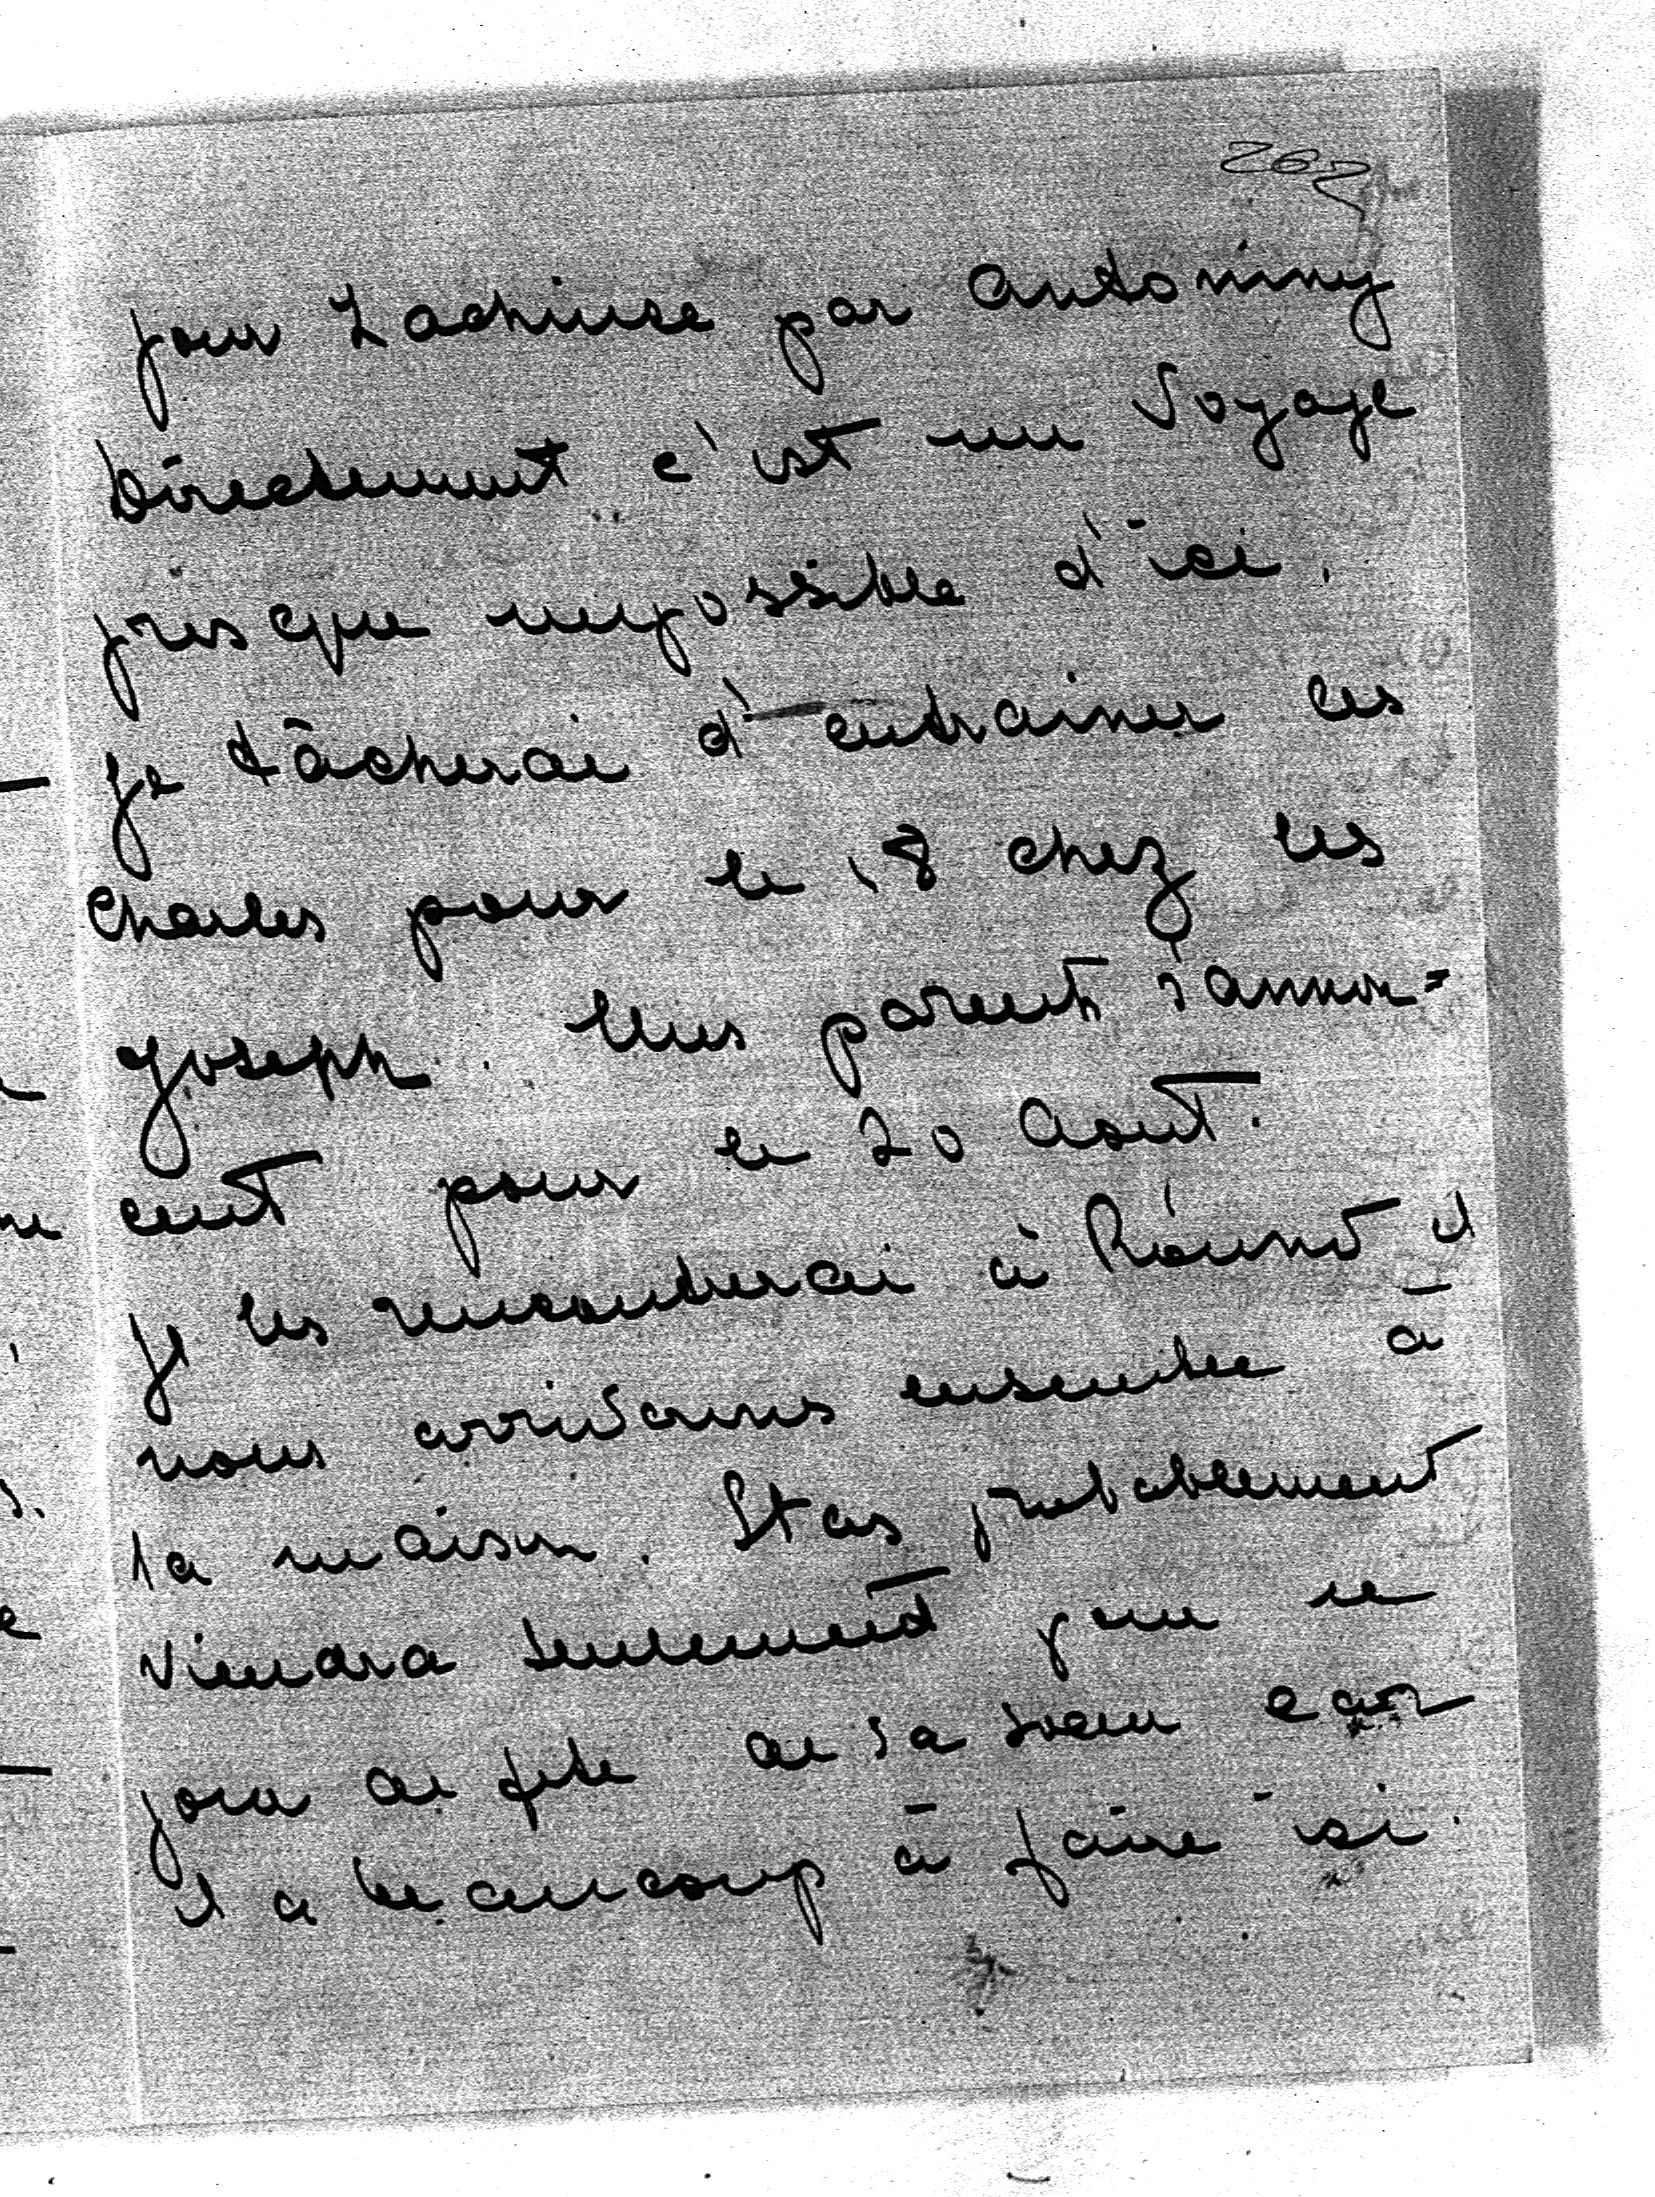 262
pour Lachiuse par Antoniny
Directement c'est un Voyage
presque impossible d'ici.
Je tâcherai d'entrainer les
Charles pour le 18 chez les
Joseph. Mes parents s'annon=
cent pour le 20 Août.
Je les rencontrerai à Równo et
nous arriverons ensemble à
la maison. Stas probablement
viendra seulement pour le
jour de fete de sa soeur car
il a beaucoup à faire ici.